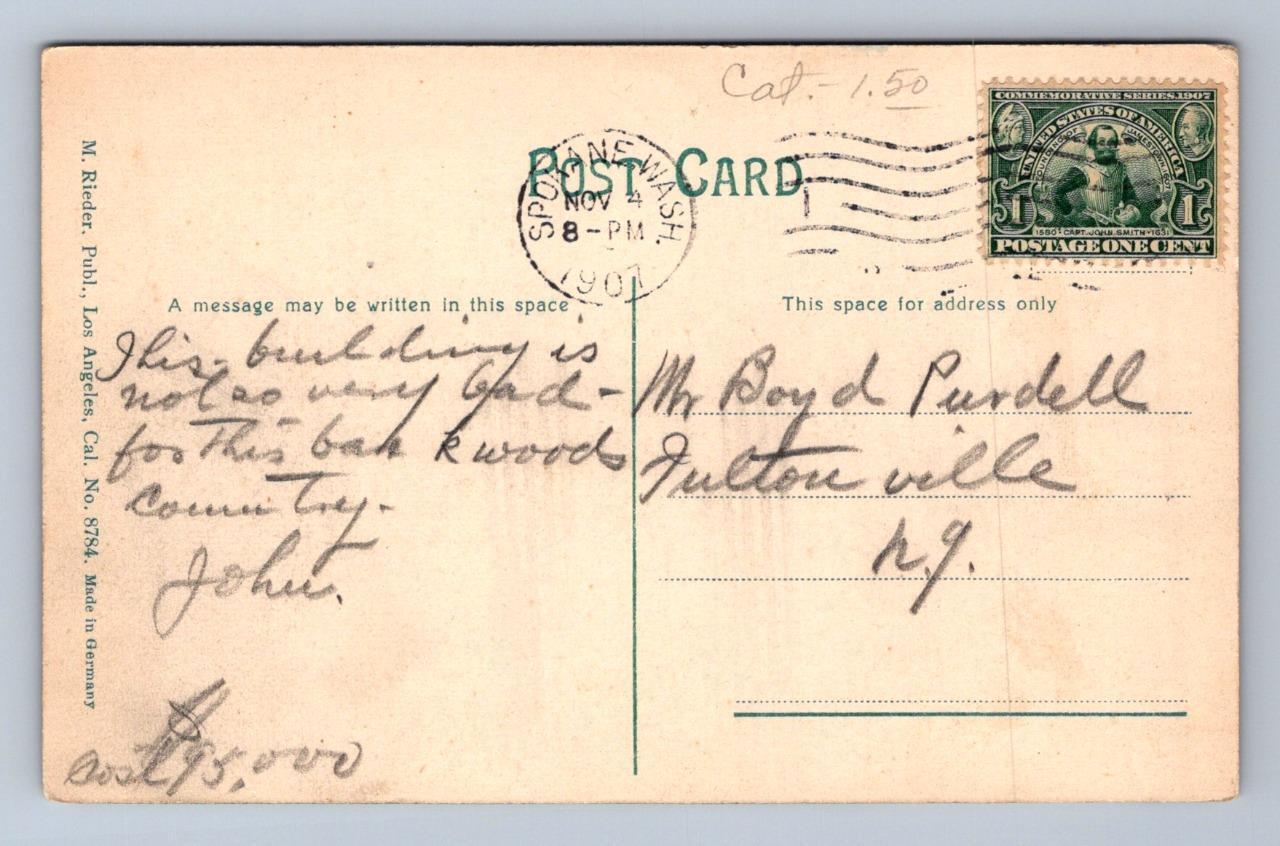 Cat. - 1.50
COMMEMORATIVE SERIES 1907
UNITED STATES OF AMERICA
FOUNDING OF JAMESTOWN 1607
1 1
1580 · CAPT. JOHN SMITH · 1631
POSTAGE ONE CENT
POST CARD
SPOKANE, WASH.
NOV 4
8-PM
1907
1
A message may be written in this space
This space for address only
This building is
not so very bad -
for this back woods
country.
John.
Cost $95,000
Mr Boyd Purdell
Fultonville
N.Y.
M. Rieder. Publ., Los Angeles, Cal. No. 8784. Made in Germany